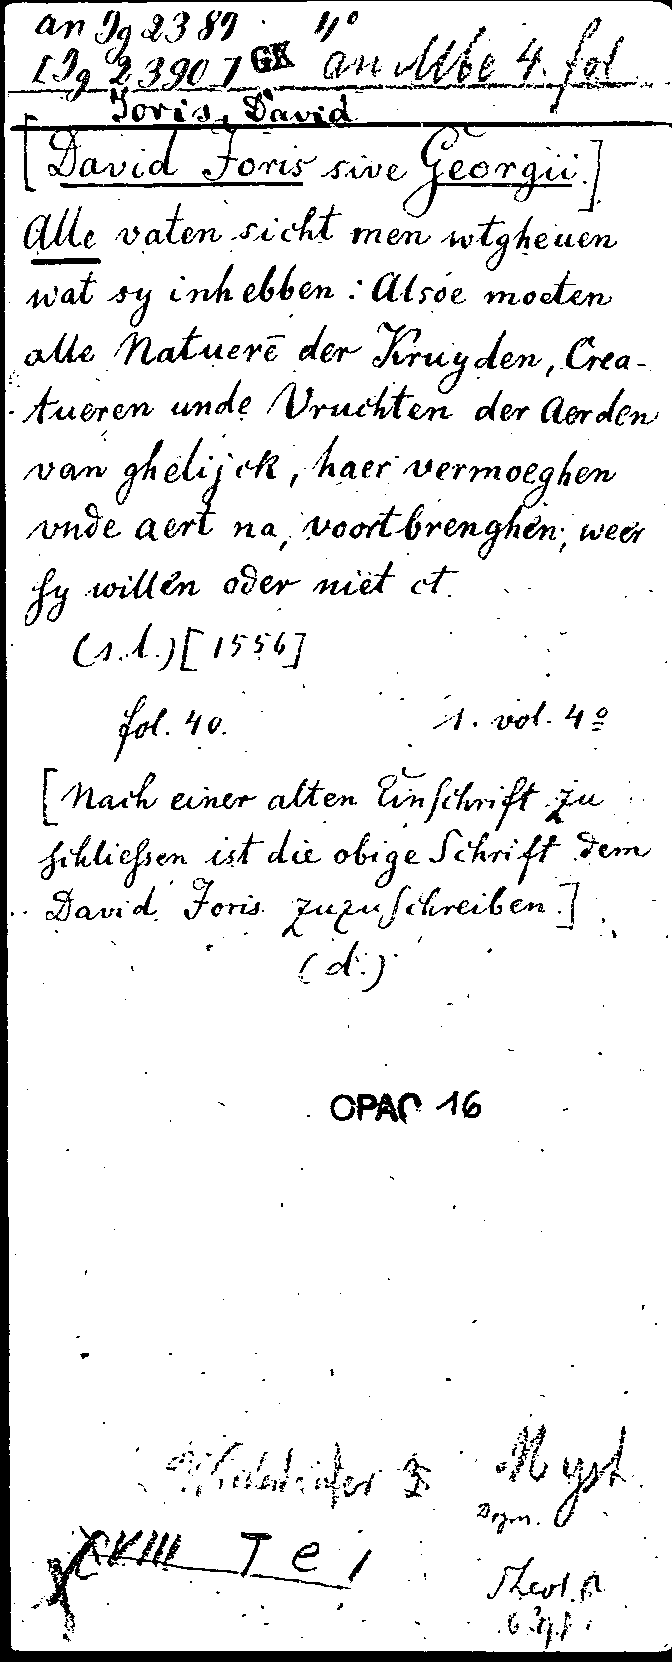 an Ig 2389 4°
[Ig 23907 GK an Mbe 4. fol
Joris, David
[David Joris sive Georgii.]
Alle vaten sicht men wtgheuen
wat sy inhebben: Alsoe moeten
alle Natuerē der Kruyden, Crea-
tueren unde Vruchten der Aerden
van ghelijck, haer vermoeghen
vnde aert na, voortbrenghen; weer
sy willen oder niet ct.
(s.l.) [1556]
fol. 40. 1. vol. 4º
[Nach einer alten Einschrift zu
schliessen ist die obige Schrift dem
David Joris zuzuschreiben.]
(d.)
OPAC 16
Wiedertäufer Myst
XVIII T e 1
Theol.